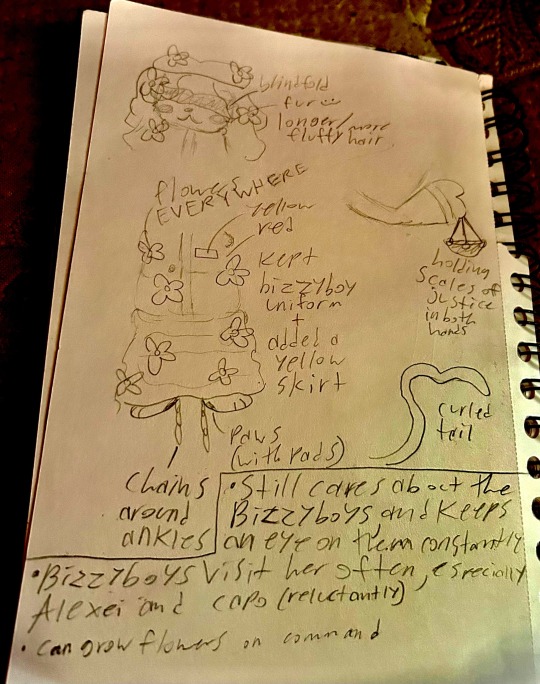 blindfold
fur
longer/more
fluffy hair
flowers
EVERYWHERE
yellow
red
kept
bizzyboy
uniform
+
added a
yellow
skirt
holding
scales of
Justice
in both
hands
curled
tail
paws
(with pads)
chains
around
ankles
• Still cares about the
Bizzyboys and keeps
an eye on them constantly
• Bizzyboys visit her often, especially
Alexei and capo (reluctantly)
• can grow flowers on command